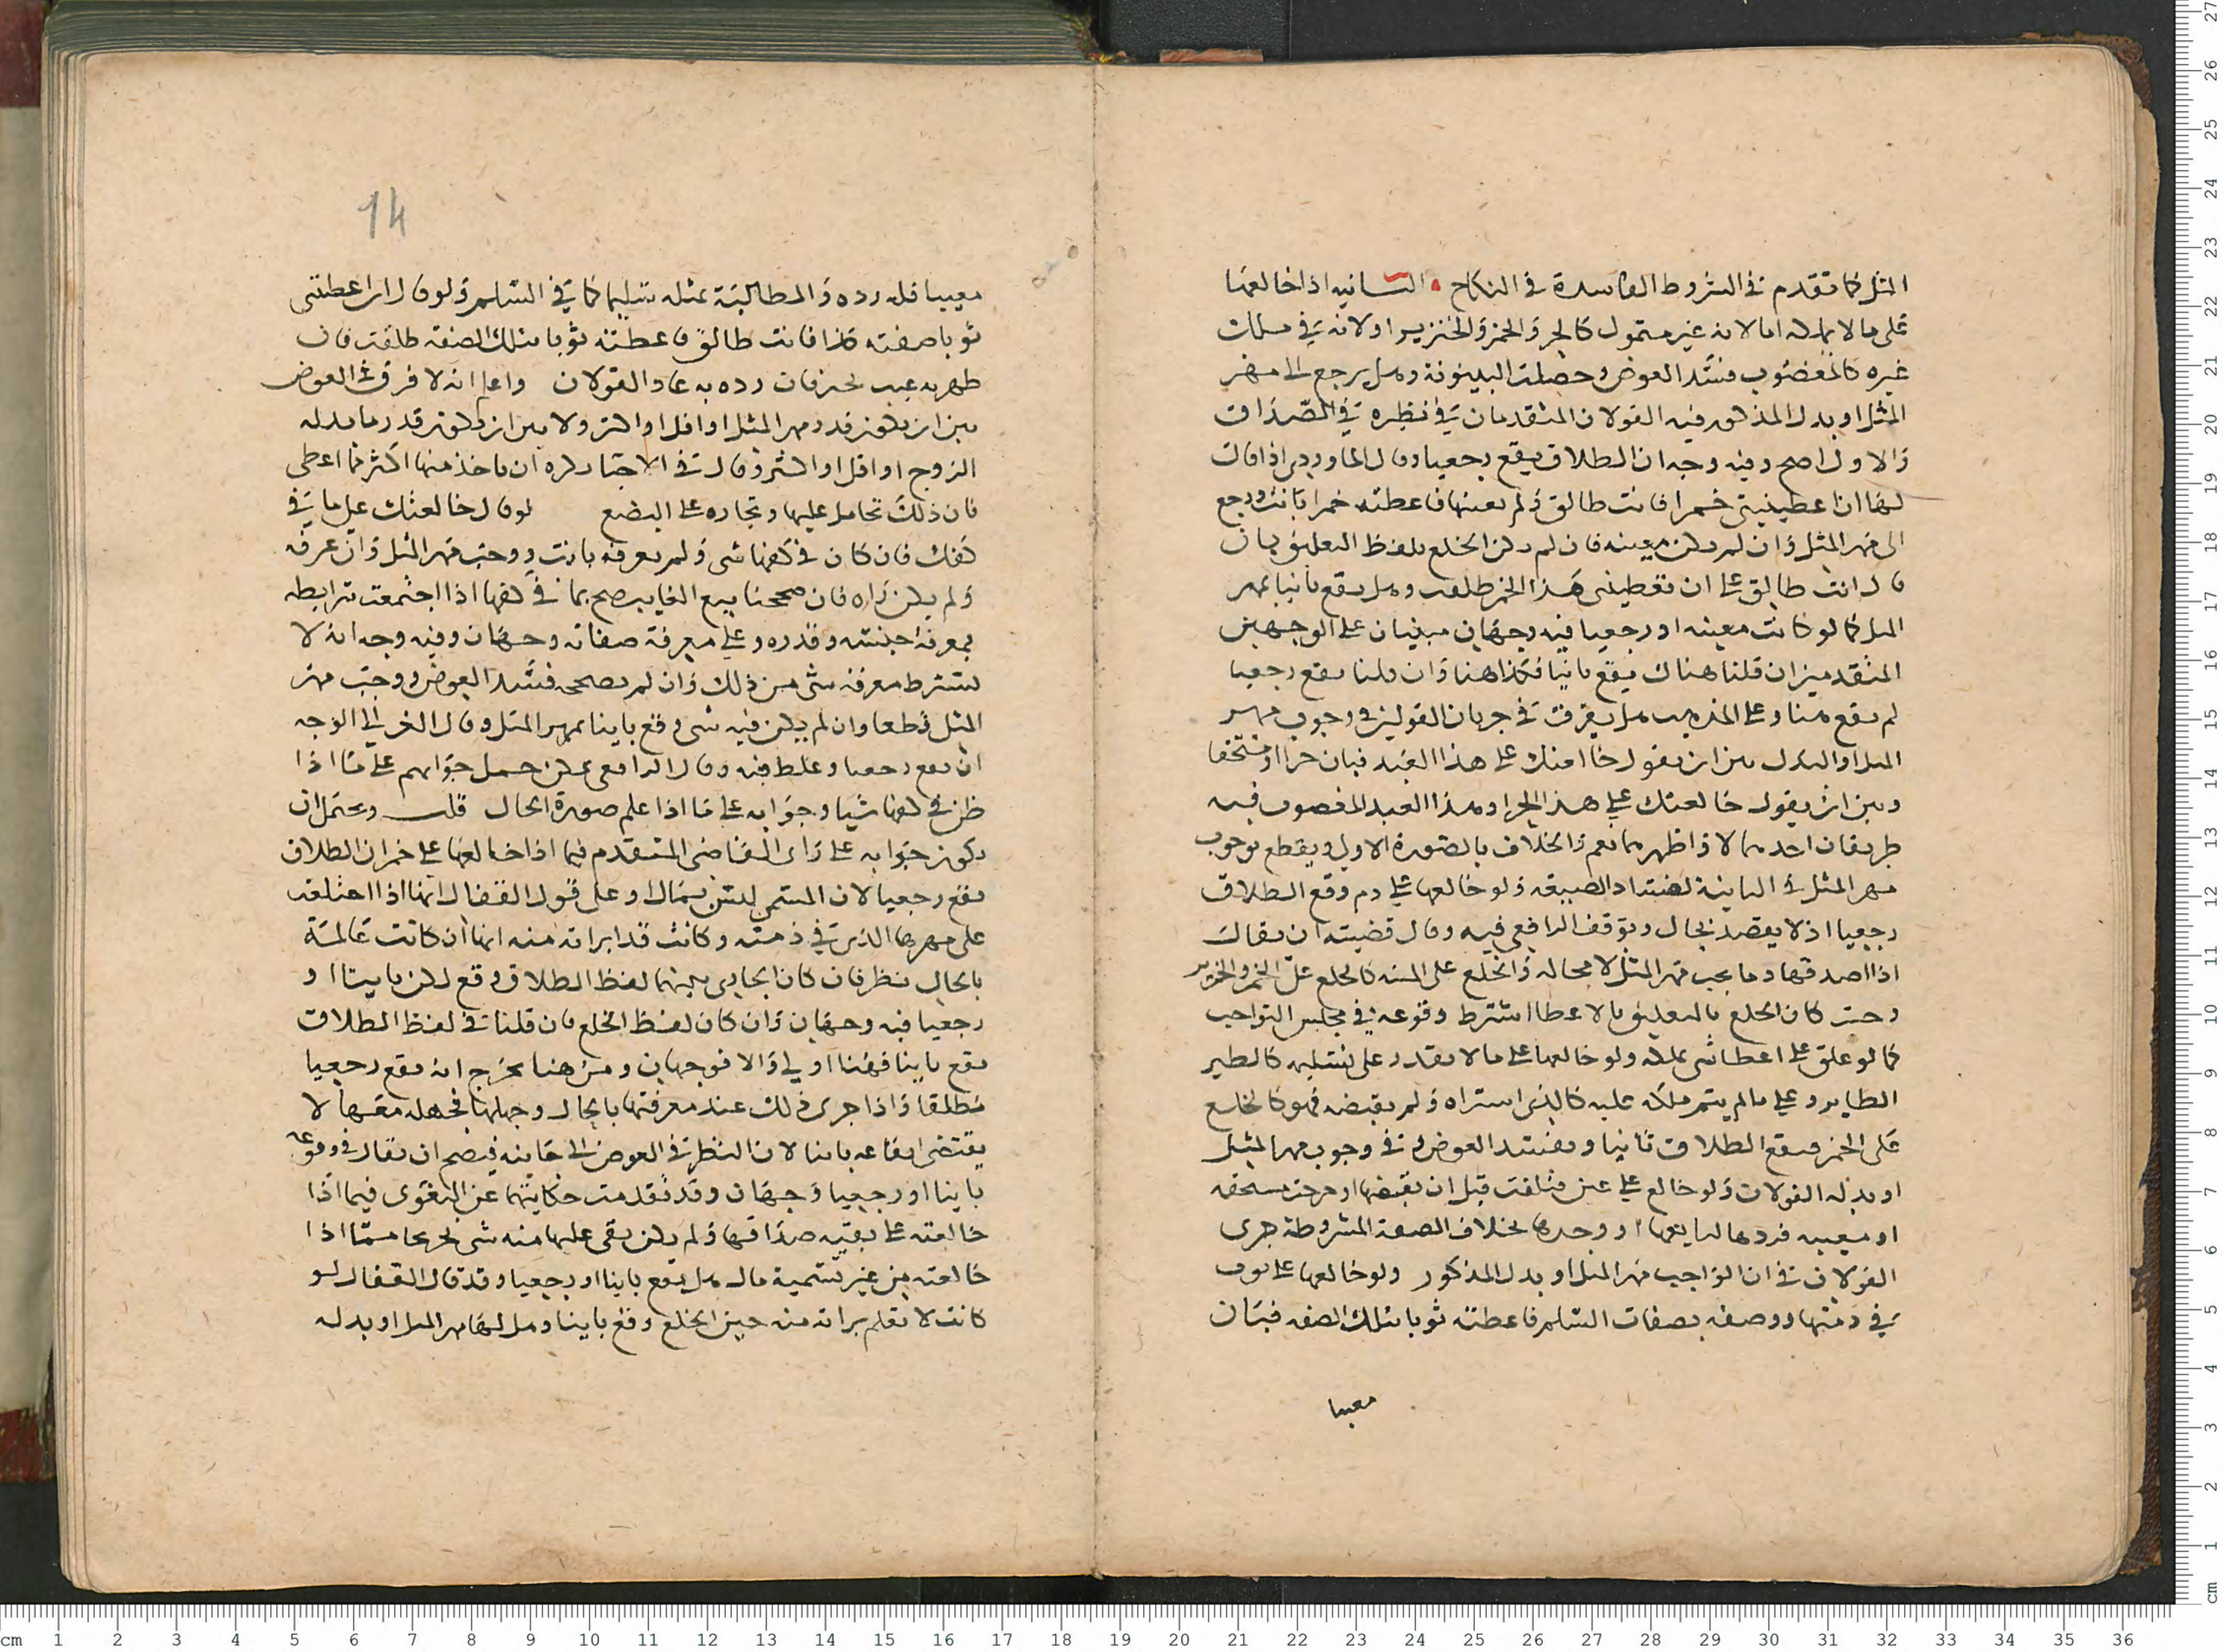 المثل كما تقدم في الشروط الفاسدة في النكاح الثانيه اذا خالعها
على ما لا يملكه اما لانه غير متمول كالحر والخمر والخنزير او لانه في ملك
غيره كالمغضوب فسد العوض وحصلت البينونة وهل يرجع الى مهر
المثل او بدل المذكور فيه القولان المتقدمان في نظيره في الصداق
والاول اصح وفيه وجه ان الطلاق يقع رجعيا وقال الماوردي اذا قال
لها ان اعطيتيني خمرا فانت طالق ولم يعينها فاعطته خمرا بانت ورجع
الى مهر المثل وان لم يكن معينه فان لم يكن الخلع بلفظ التعليق بان
قال انت طالق على ان تعطيني هذا الخمر طلقت وهل يقع باينا بمهر
المثل كما لو كانت معينه او رجعيا فيه وجهان مبنيان على الوجهين
المتقدمين ان قلنا هناك يقع باينا فكذا هنا وان قلنا يقع رجعيا
لم يقع هنا وعلى المذهب هل يفرق في جريان القولين في وجوب مهر
المثل او البدل بين ان يقول خالعتك على هذا العبد فبان حرا او مستحقا
وبين ان يقول خالعتك على هذا الحر او هذا العبد المغصوب فيه
طريقان احدهما لا واظهرهما نعم والخلاف بالصورة الاولى ويقطع بوجوب
مهر المثل في الثانية لفساد الصيغه ولو خالعها على دم وقع الطلاق
رجعيا اذ لا يقصد بحال وتوقف الرافعي فيه وقال قضيته ان يقال
اذا اصدقها دما يجب مهر المثل لا محاله والخلع على الميته كالخلع على الخمر والخنزير
وحيث كان الخلع بالتعليق بالاعطا اشترط وقوعه في مجلس التواجب
كما لو علق على اعطا شي يملكه ولو خالعها على ما لا يقدر على تسليمه كالطير
الطاير وعلى ما لم يتم ملكه عليه كالذي اشتراه ولم يقبضه فهو كالخلع
على الخمر فيقع الطلاق باينا ويفسد العوض وفي وجوب مهر المثل
او بدله القولان ولو خالع على عين فتلفت قبل ان يقبضها او خرجت مستحقه
او معيبه فردها لبايعها او وجدها بخلاف الصفة المشروطة جرى
القولان في ان الواجب مهر المثل او بدل المذكور ولو خالعها على ثوب
في ذمتها ووصفه بصفات السلم فاعطته ثوبا بتلك الصفه فبان
معيبا
14
معيبا فله رده والمطالبة بمثله سليما كما في السلم ولو قال ان اعطيتني
ثوبا صفته كذا فانت طالق فاعطته ثوبا بتلك الصفه طلقت فان
ظهر به عيب فرده به عاد القولان واعلم انه لا فرق في العوض
بين ان يكون قدر مهر المثل او اقل او اكثر ولا بين ان يكون قدر ما بدله
الزوج او اقل او اكثر وقال في يكره ان ياخذ منها اكثر مما اعطى
فان ذلك تحامل عليها وتجاره على البضع لو قال خالعتك على ما في
كفك فان كان في كفها شي ولم يعرفه بانت ووجب مهر المثل وان عرفه
ولم يكن راه فان صححنا بيع الغايب صح بما في كفها اذا اجتمعت شرايطه
بمعرفة جنسه وقدره وعلى معرفة صفاته وجهان وفيه وجه انه لا
يشترط معرفة شي من ذلك وان لم نصححه فسد العوض ووجب مهر
المثل قطعا وان لم يكن فيه شي وقع باينا بمهر المثل وقال الغزالي الوجه
ان يقع رجعيا وغلط فيه وقال الرافعي يمكن حمل جوابهم على ما اذا
ظن في كفها شيا وجوابه على ما اذا علم صورة الحال قلت ويحتمل ان
يكون جوابه على راي القاضي المتقدم فيما اذا خالعها على خمر ان الطلاق
يقع رجعيا لان المسمى ليس بمال وعلى قول القفال انها اذا اختلعت
على مهرها الذي في ذمته وكانت قد ابراته منه انها ان كانت عالمة
بالحال ينظر فان كان الجاري بينهما لفظ الطلاق وقع لكن باينا او
رجعيا فيه وجهان وان كان لفظ الخلع فان قلنا في لفظ الطلاق
يقع باينا فهنا اولى والا فوجهان ومن هنا يخرج انه يقع رجعيا
مطلقا واذا جرى ذلك عند معرفتها بالحال وجهلها فجهله معها لا
يقتضي ايقاعه باينا لان النظر في العوض الى جانبه فيصح ان يقال في وقوعه
باينا او رجعيا وجهان وقد تقدمت حكايتهما عن البغوي فيما اذا
خالعته على بقية صداقها ولم يكن بقي عليها منه شي تخريجا مما اذا
خالعته من غير تسمية مال هل يقع باينا او رجعيا وقد قال القفال لو
كانت لا تعلم براته منه حين الخلع وقع باينا وهل لها مهر المثل او بدله